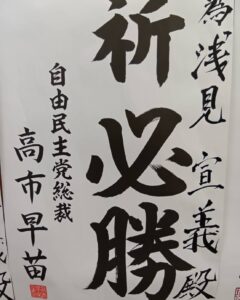 為浅見宣義殿
祈必勝
自由民主党総裁
高市早苗